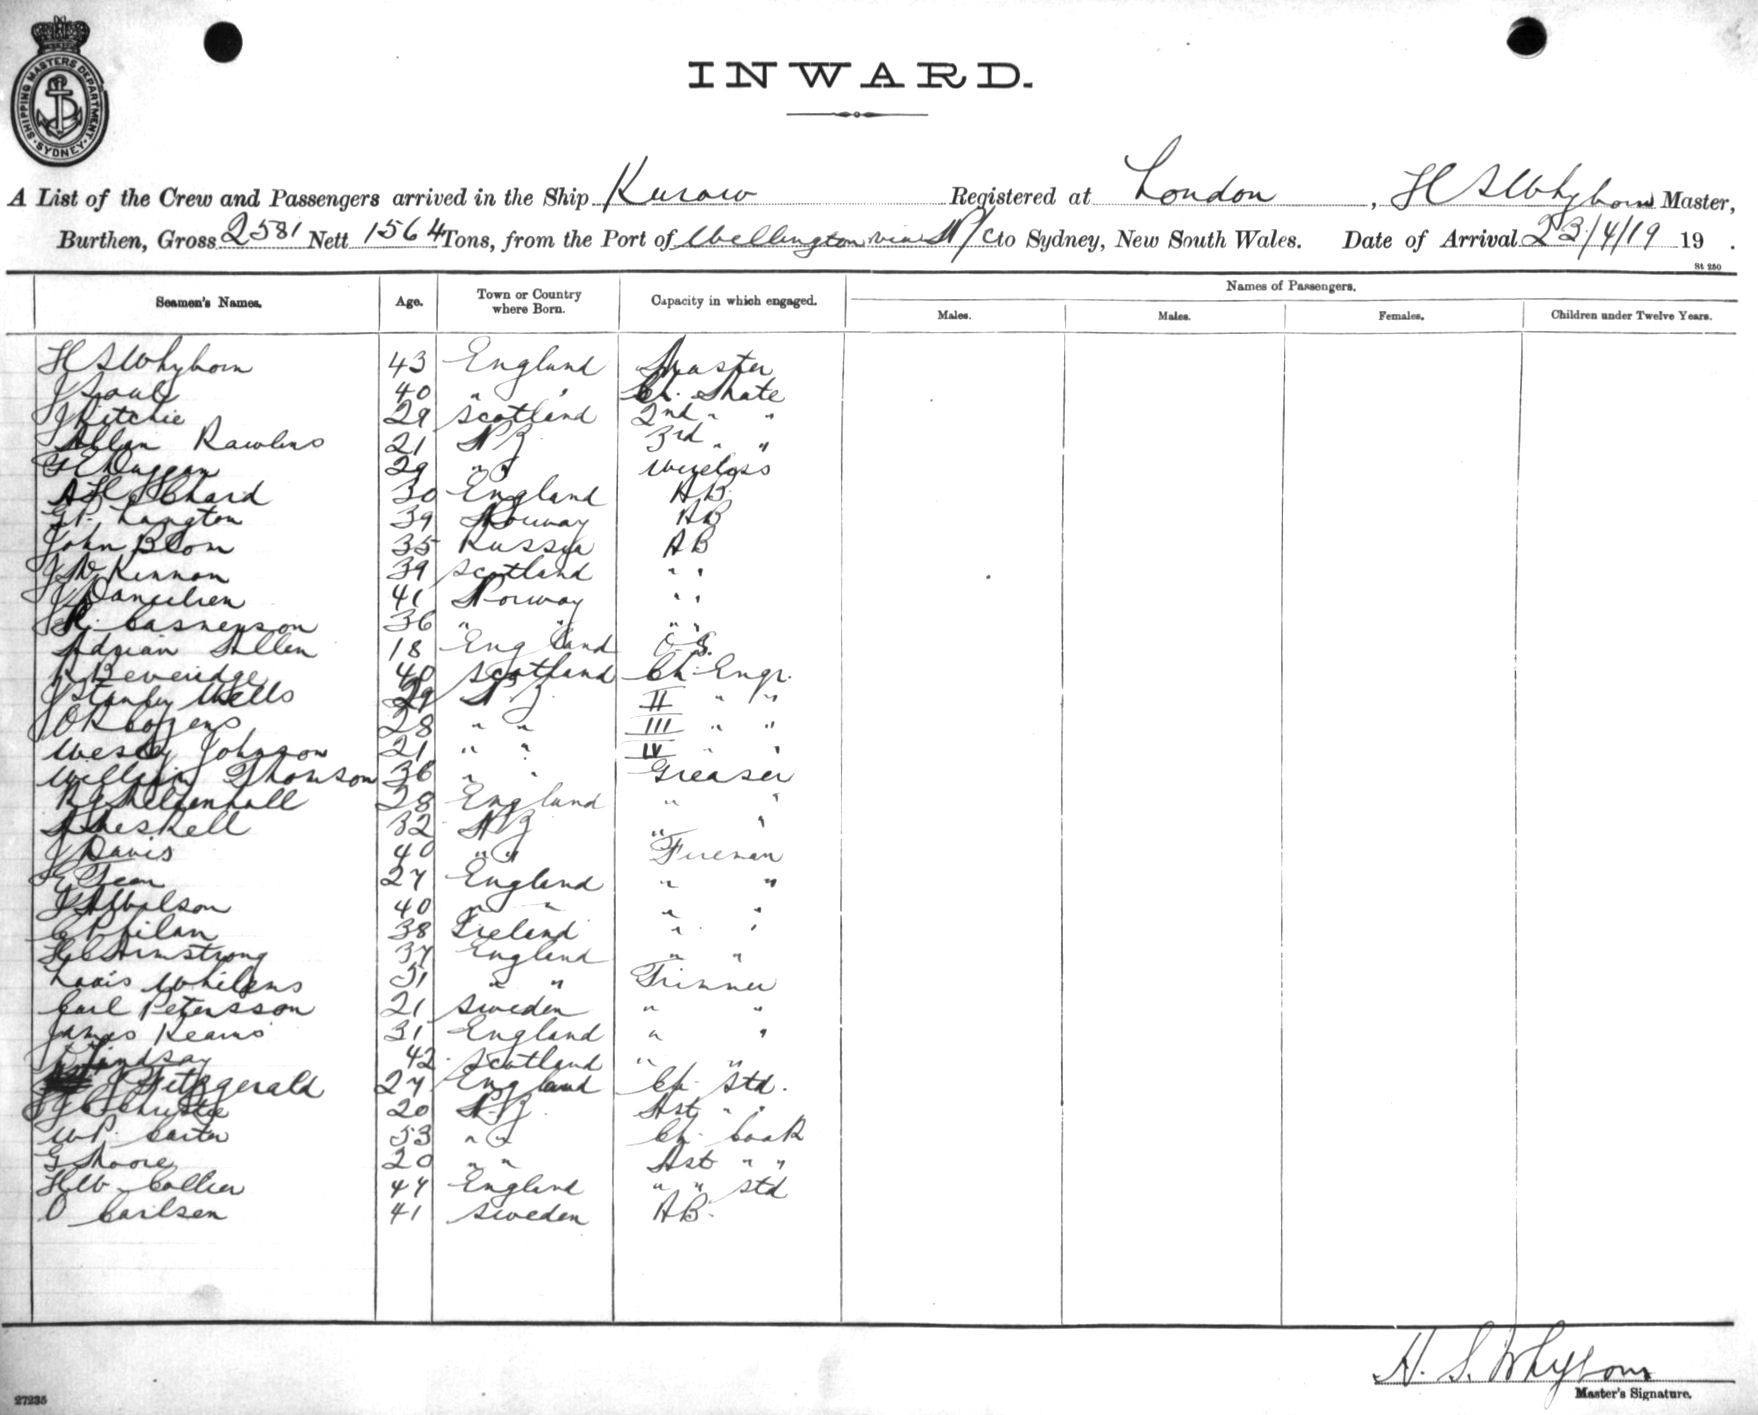 SHIPPING MASTERS DEPARTMENT SYDNEY
INWARD.
A List of the Crew and Passengers arrived in the Ship Kurow Registered at London, H S Whyborn Master,
Burthen, Gross 2581 Nett 1564 Tons, from the Port of Wellington via N/C to Sydney, New South Wales. Date of Arrival 23/4/19 19 .
St 250
Seamen's Names. Age. Town or Country where Born. Capacity in which engaged. Names of Passengers.
Males. Males. Females. Children under Twelve Years.
H S Whyborn 43 England Master
J 40 " " Ch. Mate
J Ritchie 29 Scotland 2nd " "
Allan Rawlins 21 N Z 3rd " "
G E Duggan 29 " " Wireless
A H 30 England AB.
G P. Langton 39 Norway AB
John Blom 35 Russia AB
J Mc Kinnon 39 Scotland " "
J Danielsen 41 Norway " "
K. 36 " " " "
Adrian Allen 18 England O.S.
R Beveridge 40 Scotland Ch. Engr.
J Stanley Wells 29 N Z II " "
O R Cozens 28 " " III " "
Wesley Johnson 21 " " IV " "
William Thomson 36 " " Greaser
28 England " "
A Meskell 32 N Z " "
J Davis 40 " " Fireman
27 England " "
J A Wilson 40 " " " "
C P 38 Ireland " "
H C Armstrong 37 England " "
Louis 51 " " Trimmer
Carl Petersson 21 Sweden " "
James Kearns 31 England " "
Lindsay 42 Scotland " "
J Fitzgerald 27 England Ch. Std.
J C Christie 20 N.Z. Ast " "
W P. Carter 53 " " Ch. Cook
G Moore 20 " " Ast " "
H W Collier 44 England " " std
O Carlsen 41 Sweden AB.
H. S. Whyborn
Master's Signature.
27235